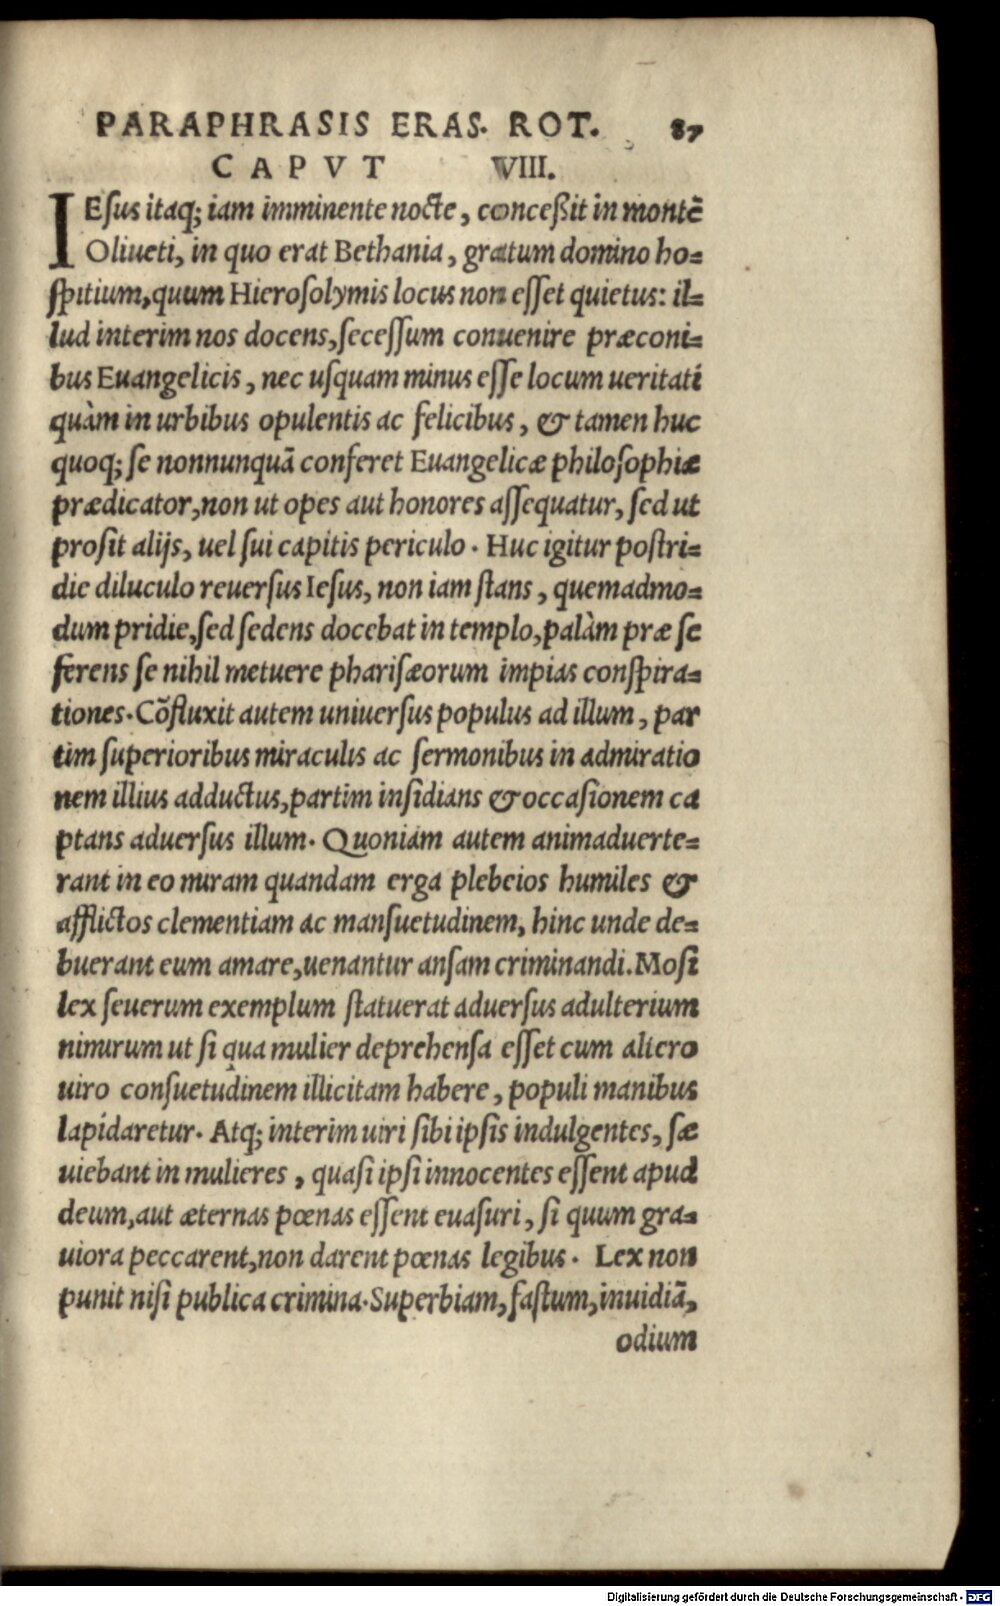 PARAPHRASIS ERAS. ROT. 87
CAPVT VIII.
IEsus itaq; iam imminente nocte, conceßit in montē
Oliueti, in quo erat Bethania, gratum domino ho=
spitium, quum Hierosolymis locus non esset quietus: il=
lud interim nos docens, secessum conuenire præconi=
bus Euangelicis, nec usquam minus esse locum ueritati
quàm in urbibus opulentis ac felicibus, & tamen huc
quoq; se nonnunquā conferet Euangelicæ philosophiæ
prædicator, non ut opes aut honores assequatur, sed ut
prosit alijs, uel sui capitis periculo. Huc igitur postri=
die diluculo reuersus Iesus, non iam stans, quemadmo=
dum pridie, sed sedens docebat in templo, palàm præ se
ferens se nihil metuere pharisæorum impias conspira=
tiones. Cōfluxit autem uniuersus populus ad illum, par
tim superioribus miraculis ac sermonibus in admiratio
nem illius adductus, partim insidians & occasionem ca
ptans aduersus illum. Quoniam autem animaduerte=
rant in eo miram quandam erga plebeios humiles &
afflictos clementiam ac mansuetudinem, hinc unde de=
buerant eum amare, uenantur ansam criminandi. Mosi
lex seuerum exemplum statuerat aduersus adulterium
nimirum ut si qua mulier deprehensa esset cum altero
uiro consuetudinem illicitam habere, populi manibus
lapidaretur. Atq; interim uiri sibi ipsis indulgentes, sæ
uiebant in mulieres, quasi ipsi innocentes essent apud
deum, aut æternas pœnas essent euasuri, si quum gra=
uiora peccarent, non darent pœnas legibus. Lex non
punit nisi publica crimina. Superbiam, fastum, inuidiā,
odium
Digitalisierung gefördert durch die Deutsche Forschungsgemeinschaft - DFG